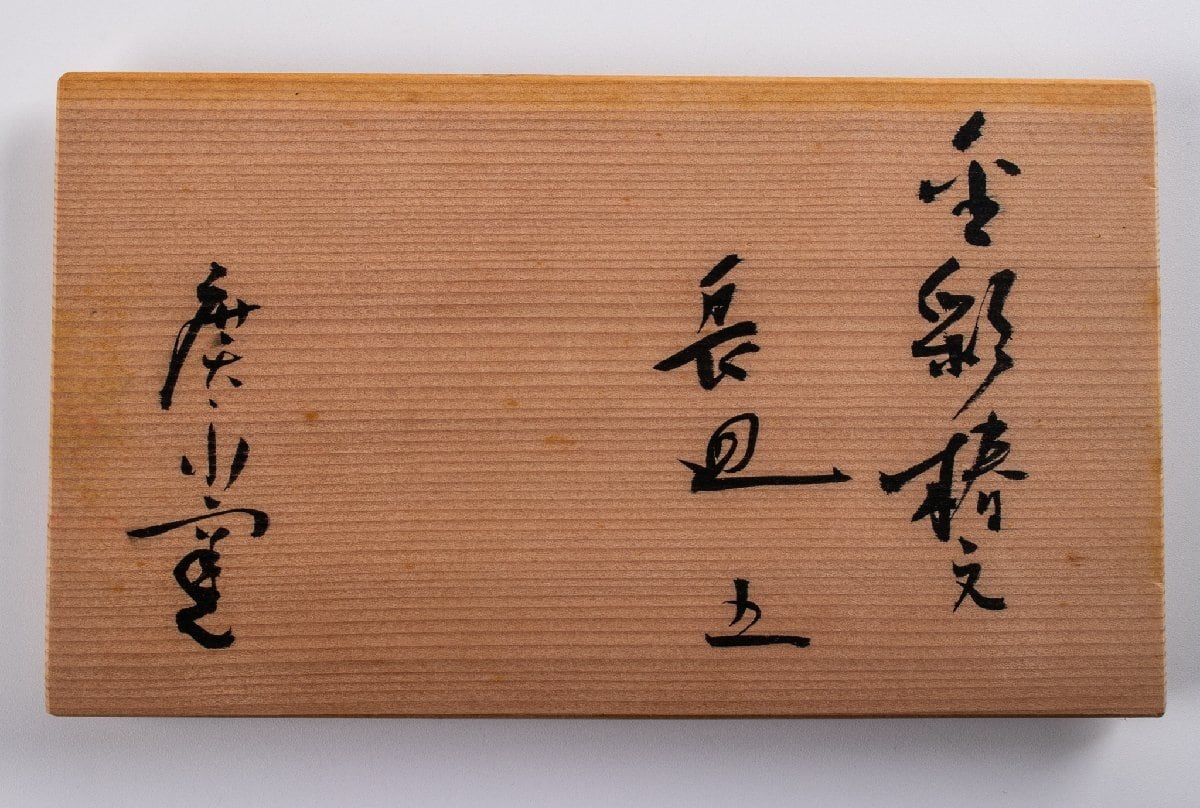 金彩椿文
長皿 五
廣小窯